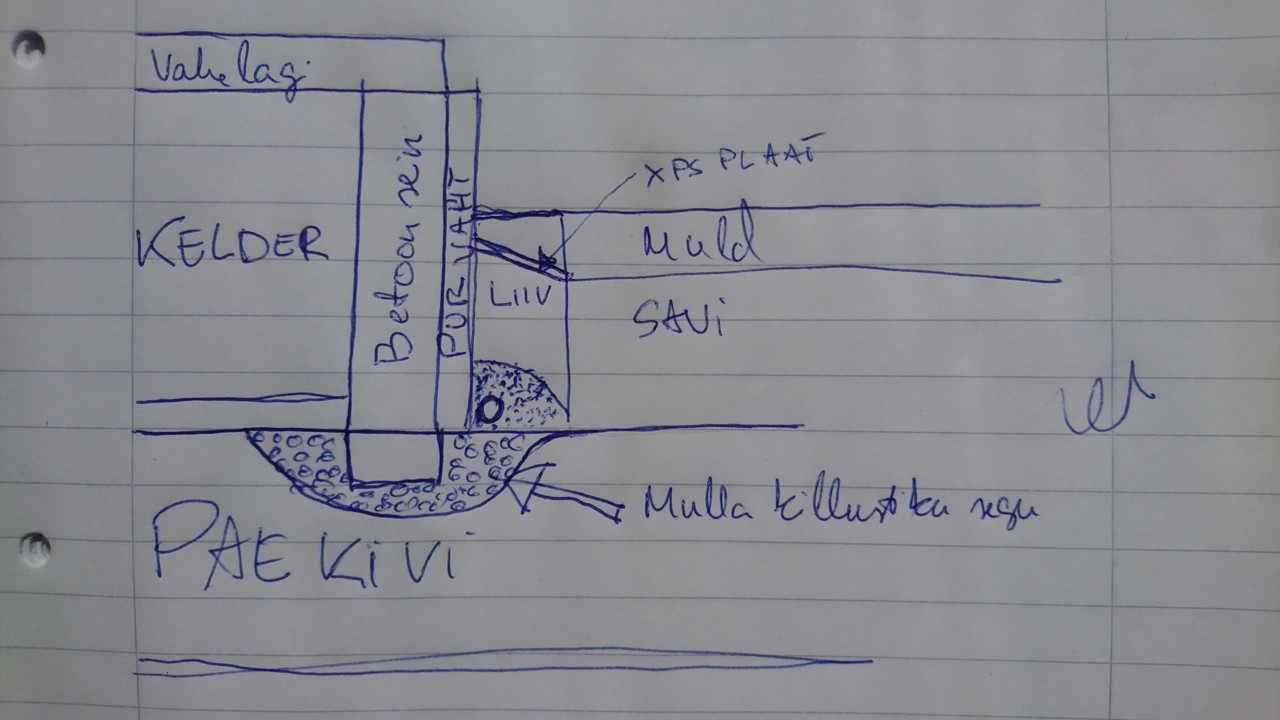 Vahelagi
XPS PLAAT
KELDER
Betoon sein
PUR VAHT
Muld
LIIV
SAVi
Mulla killustiku segu
PAEKiVi